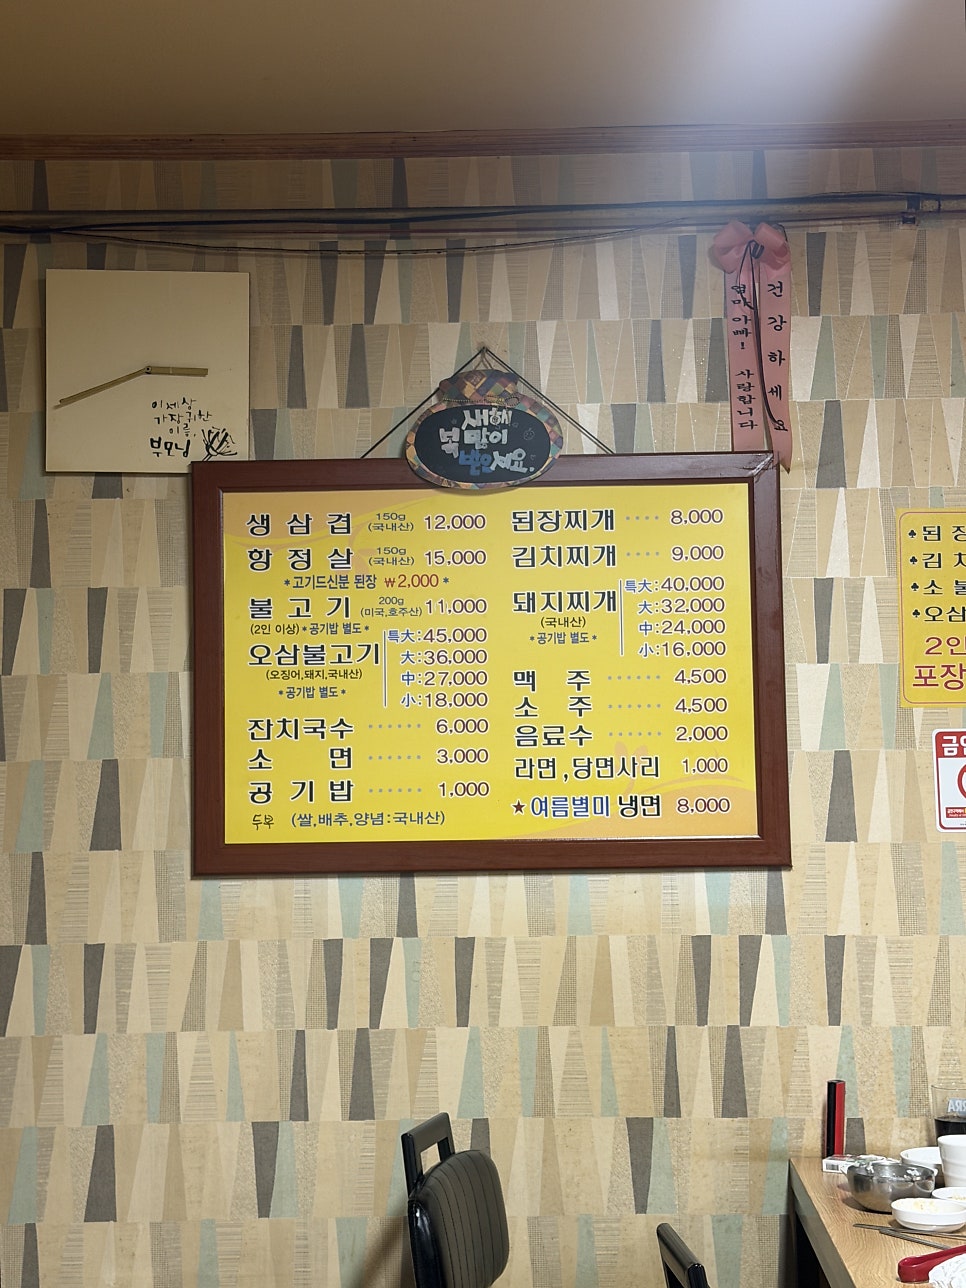 이 세상
가장 귀한
이름,
부모님
건강하세요
엄마 아빠! 사랑합니다
새해
복 많이
받으세요.
생삼겹 150g (국내산) 12,000
항정살 150g (국내산) 15,000
*고기드신분 된장 ₩2,000*
불고기 200g (미국,호주산) 11,000
(2인 이상)*공기밥 별도*
오삼불고기 특大:45,000
大:36,000
(오징어,돼지,국내산)
中:27,000
*공기밥 별도*
小:18,000
잔치국수 ······ 6,000
소면 ······ 3,000
공기밥 ······ 1,000
두부 (쌀,배추,양념:국내산)
된장찌개 ···· 8,000
김치찌개 ···· 9,000
돼지찌개 특大:40,000
大:32,000
(국내산)
中:24,000
*공기밥 별도*
小:16,000
맥주 ······ 4,500
소주 ······ 4,500
음료수 ······ 2,000
라면,당면사리 1,000
★여름별미 냉면 8,000
♣된장
♣김치
♣소불
♣오삼
2인
포장